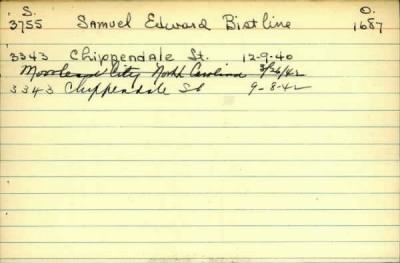 S. O.
3755 Samuel Edward Bistline 1687
3343 Chippendale St. 12-9-40
Morehead City North Carolina 3/26/42
3343 Chippendale St 9-8-42